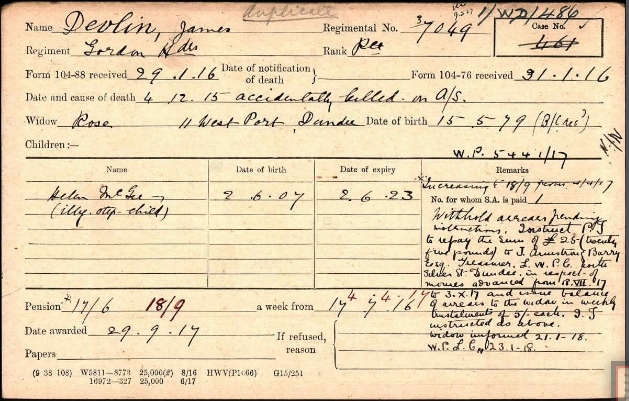 duplicate
Name Devlin, James
Regimental No. 3/7049
1/WD/1486
Case No.
461
Regiment Gordon Hdrs
Rank Pte
Form 104-88 received 29.1.16
Date of notification of death
Form 104-76 received 31.1.16
Date and cause of death 4 12.15 accidentally killed on A/S.
Widow Rose 11 West Port, Dundee Date of birth 15 5 79 (B/C recd)
Children:— W.P. 5441/17
Name Date of birth Date of expiry Remarks
Helen McGee 2.6.07 2.6.23
(illy. step-child)
Increasing to 18/9 from 4/4/17
No. for whom S.A. is paid 1
Withhold arrears pending
instructions. Instruct P/I
to repay the sum of £25 (twenty
five pounds) to J. Armstrong Barry
Esq. Treasurer, L.W.P.C.
Silver St. Dundee, in respect of
monies advanced from 18.VII.17
to 3.X.17 and issue balance
of arrears to the widow in weekly
instalments of 5/- each. P.I
instructed as above.
Widow informed 21.1.18.
W.P.L.C. 23.1.18.
Pension 17/6 18/9 a week from
Date awarded 29.9.17
If refused, reason
Papers
(9 38 108) W5811—8773 25,000(2) 8/16 HWV(P1466) G15/251
16972—327 25,000 6/17